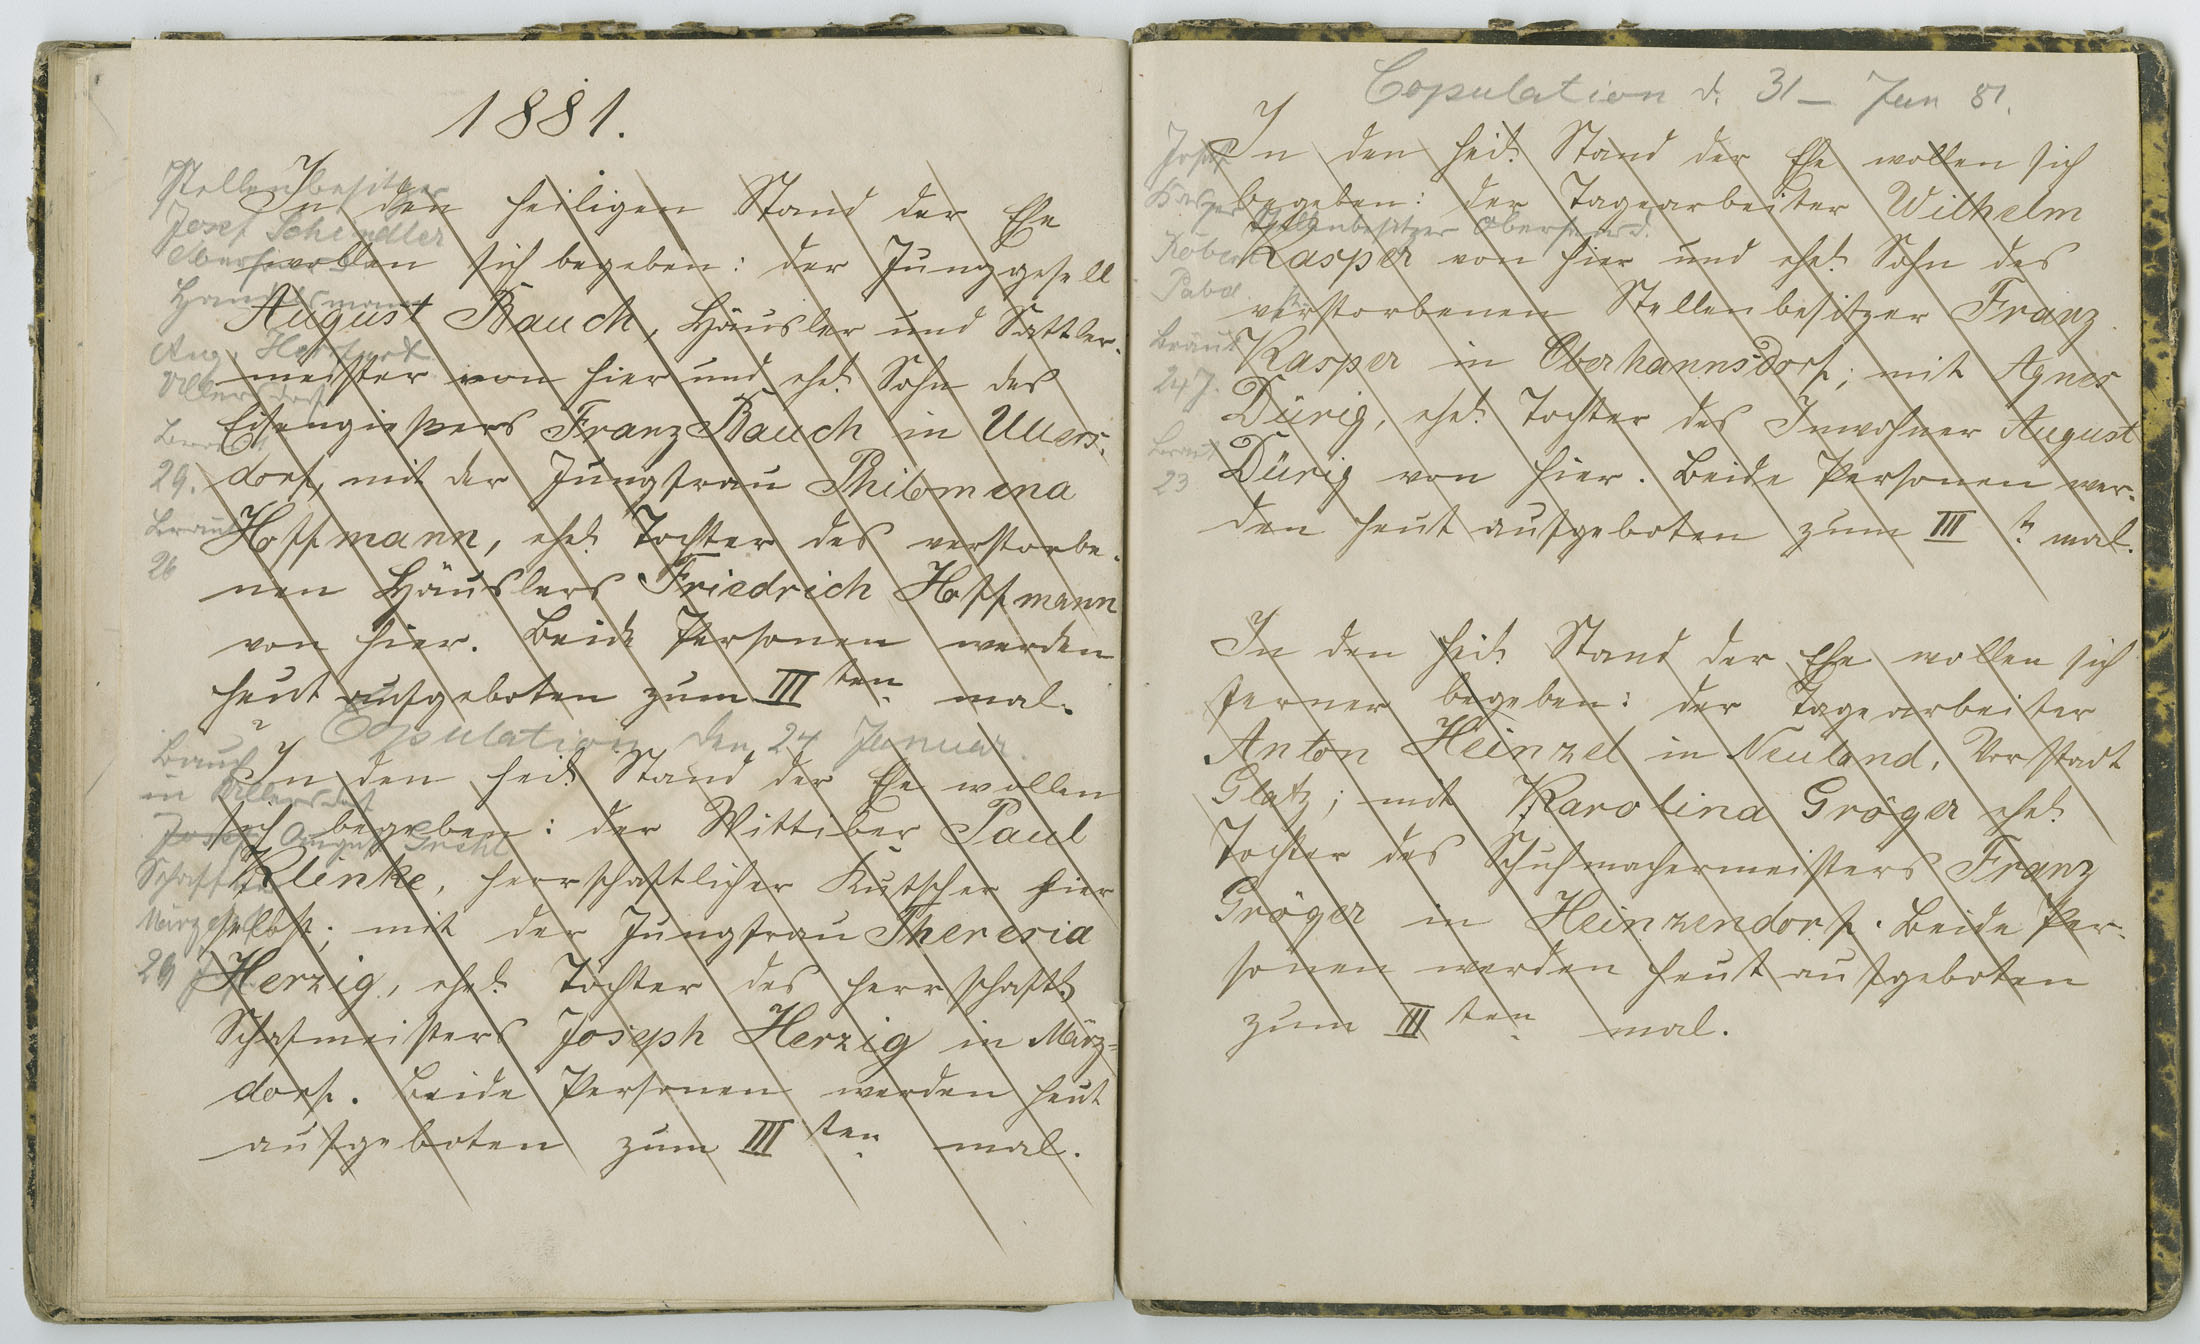 1881.
Stellenbesitzer
Josef Schindler
In den heiligen Stand der Ehe
wollen sich begeben: der Junggesell
August Bauch, Häusler und Sattler-
meister von hier und ehel. Sohn des
Eisengießers Franz Bauch in Ullers-
dorf, mit der Jungfrau Philomena
Hoffmann, ehel. Tochter des verstorbe-
nen Häuslers Friedrich Hoffmann
von hier. Beide Personen werden
heut aufgeboten zum III ten mal.
29.
Braut
26
Copulation den 24 Januar.
In den heil. Stand der Ehe wollen
sich begeben: der Wittiber Paul
Klinke, herrschaftlicher Kutscher hier
selbst; mit der Jungfrau Theresia
Herzig, ehel. Tochter des herrschaftl.
Schafmeisters Joseph Herzig in März-
dorf. Beide Personen werden heut
aufgeboten zum III ten mal.
Bauch
in Ullersdorf
August
29
Copulation d. 31 – Jan 81.
In den heil. Stand der Ehe wollen sich
begeben: der Tagearbeiter Wilhelm
Stellenbesitzer
Kasper von hier und ehel. Sohn des
verstorbenen Stellenbesitzer Franz
Kasper in Oberhannsdorf; mit Agnes
Dürig, ehel. Tochter des Inwohner August
Dürig von hier. Beide Personen wer-
den heut aufgeboten zum III t. mal.
Josef
Kasper
Robert
24 J.
Braut
23
In den heil. Stand der Ehe wollen sich
ferner begeben: der Tagearbeiter
Anton Heinzel in Neuland, Vorstadt
Glatz; mit Karolina Gröger ehel.
Tochter des Schuhmachermeisters Franz
Gröger in Heinzendorf. Beide Per-
sonen werden heut aufgeboten
zum III ten mal.